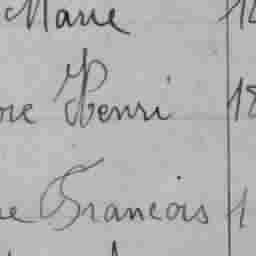 Marie 18
re Henri 18
e François 1